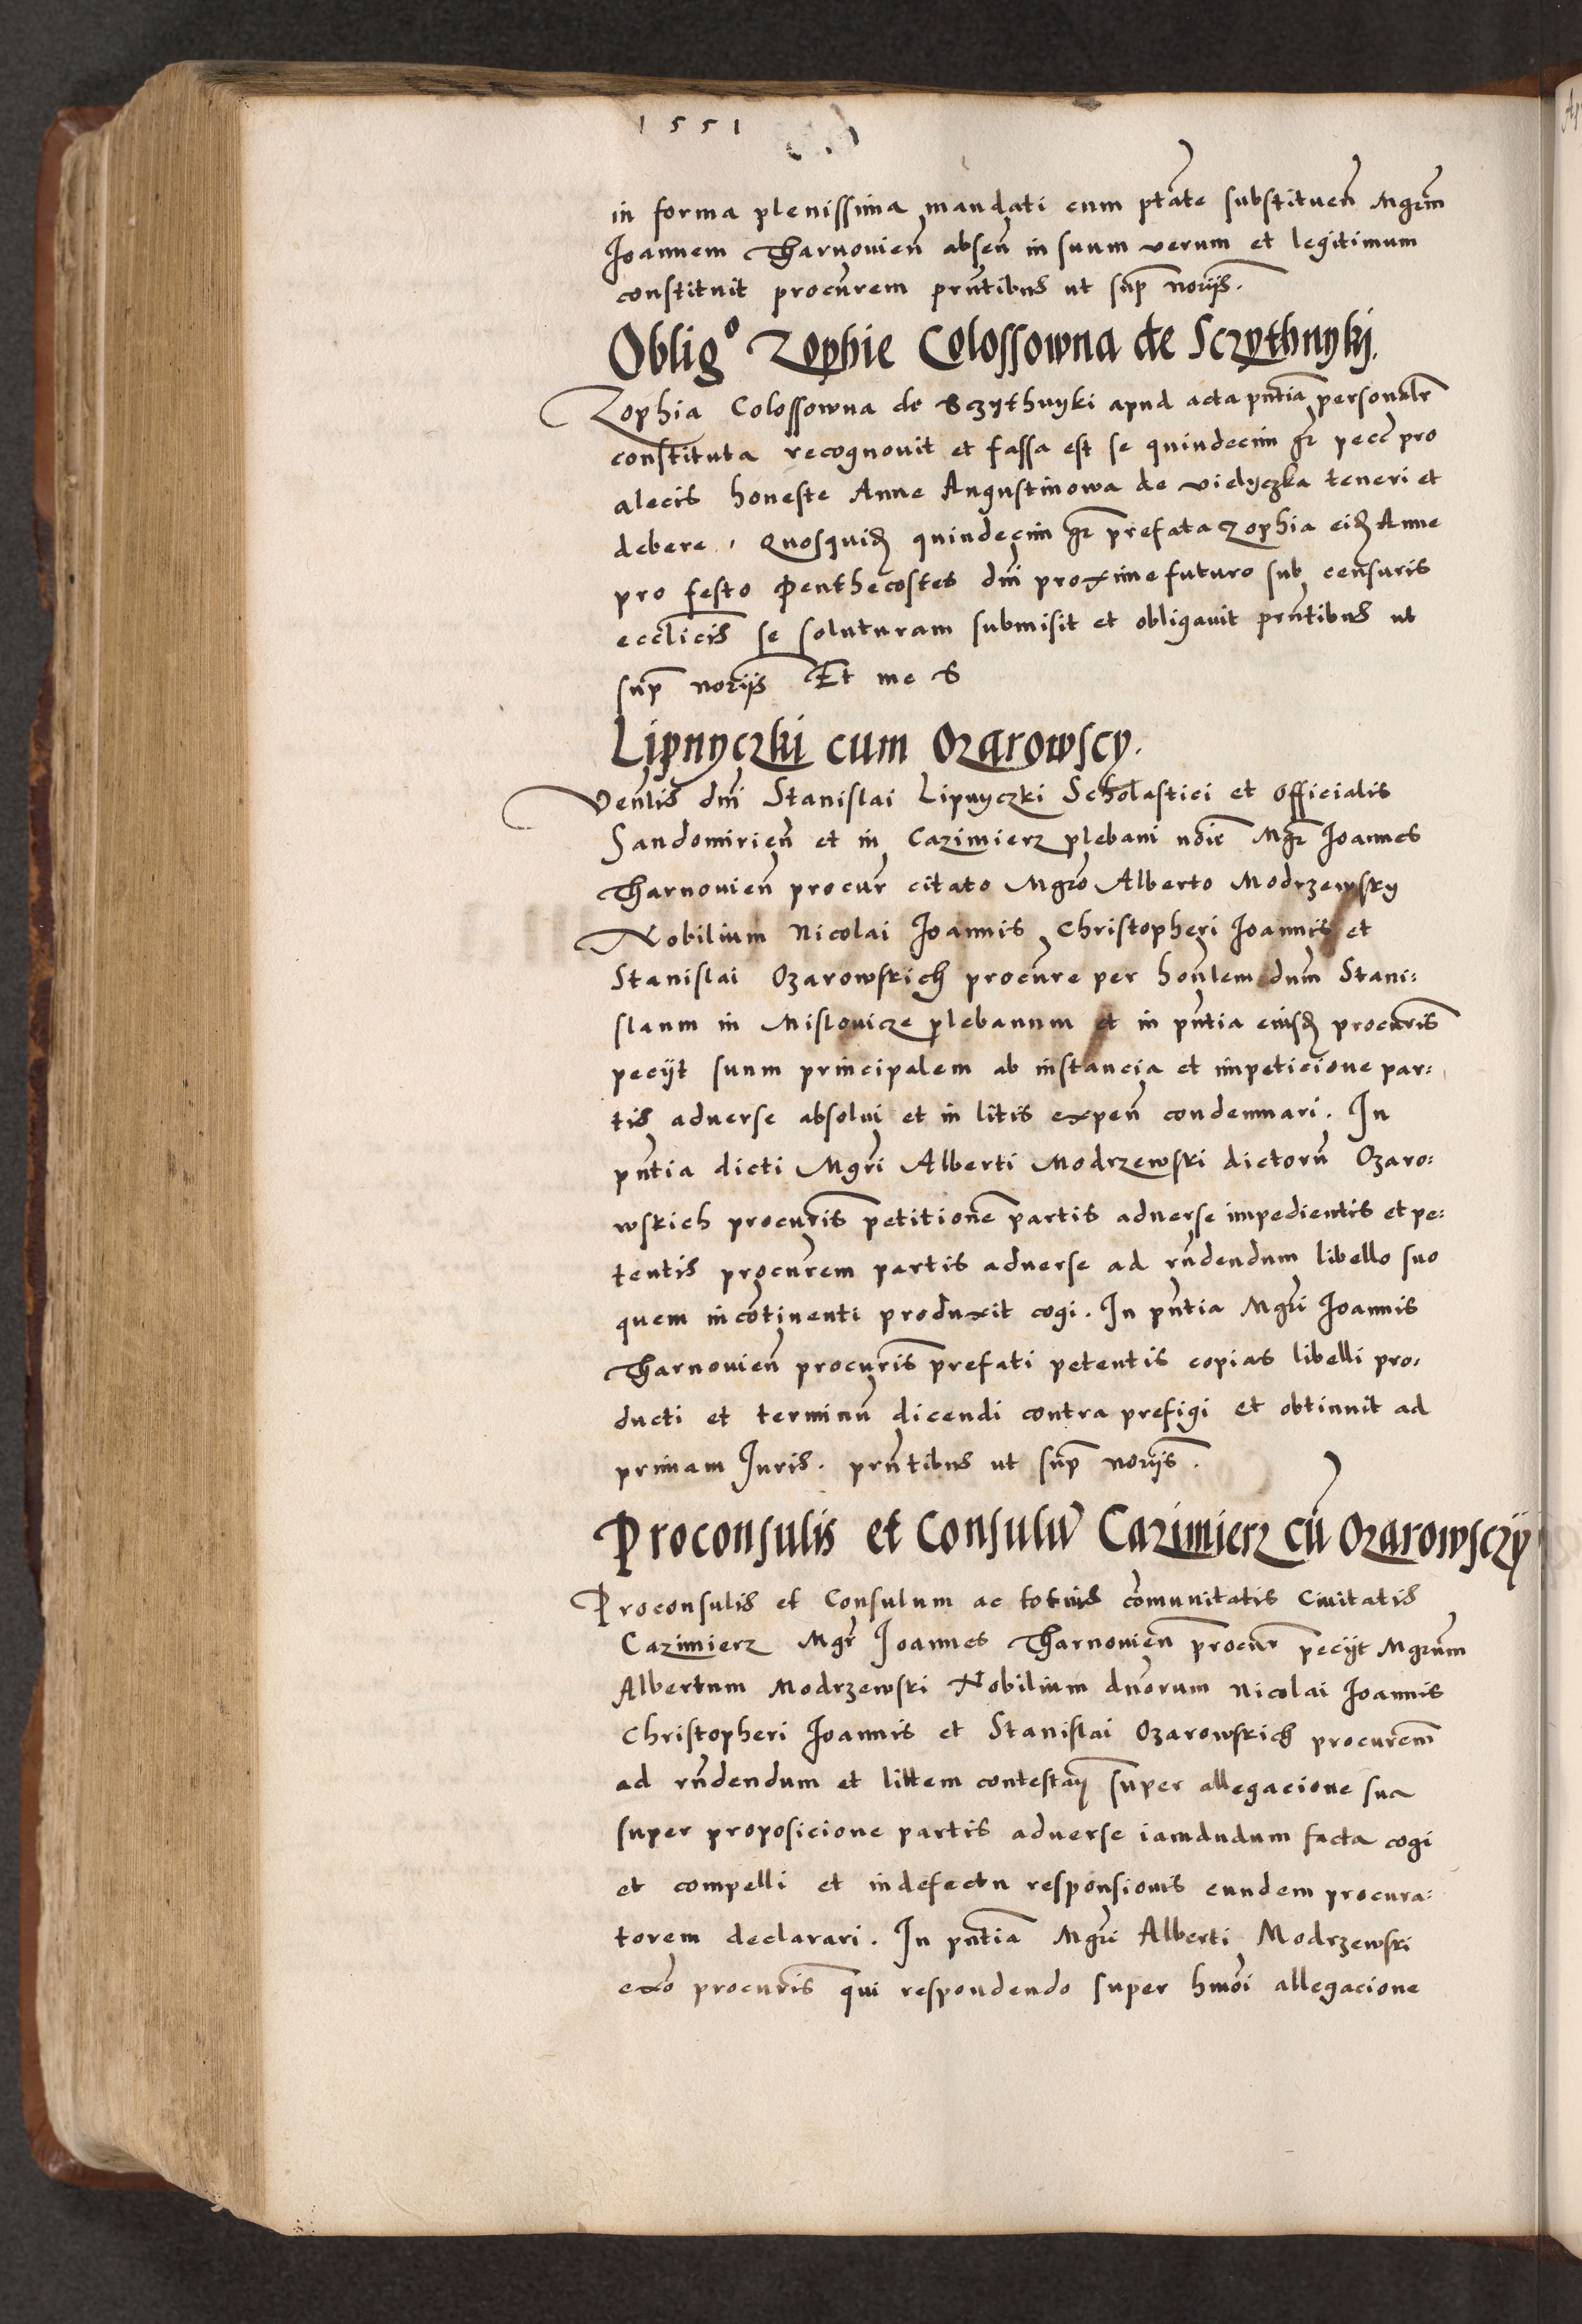 1551
in forma plenissima mandati cum ptate substituen̄ Mgrm
Joannem Tharnovien̄ absen̄ in suum verum et legitimum
constituit procūrem prn̄tibus ut sup̄ noriis.
Oblig° Zophie Colossowna de Sczythnyki.
Zophia Colossowna de Sczythnyki apud acta pn̄tia personalr̄
constituta recognouit et fassa est se quindecim gr̄ pecc̄ pro
alecis honeste Anne Angustinowa de vielyczka teneri et
debere, Quosquid̄ quindecim gr̄ prefata Zophia eid̄ Anne
pro festo Penthecostes dn̄i proxime futuro sub censuris
eccl̄icis se soluturam submisit et obligauit prn̄tibus ut
sup̄ noriis Et me S
Lipnyczki cum Ozarowscy.
Ven̄lis dn̄i Stanislai Lipnyczki Scholastici et Officialis
Sandomirien̄ et in Cazimierz plebani noīe Mgr̄ Joannes
Tharnovien̄ procur̄ citato Mgrō Alberto Modrzewsky
Nobilium Nicolai Joannis Christopheri Joannis et
Stanislai Ozarowskich procūre per hon̄lem dn̄m Stani:
slaum in Mislovicze plebanum et in pn̄tia eiusd̄ procuris̄
peciit suum principalem ab instancia et impeticione par:
tis aduerse absolui et in litis expen̄ condemnari. In
pn̄tia dicti Mgr̄i Alberti Modrzewski dictorū Ozaro:
wskich procuris̄ petitionē partis aduerse impedientis et pe:
tentis procūrem partis aduerse ad rn̄dendum libello suo
quem incōtinenti produxit cogi. In pn̄tia Mgr̄i Joannis
Tharnovien̄ procuris̄ prefati petentis copias libelli pro:
ducti et terminū dicendi contra prefigi et obtinuit ad
primam Juris. prn̄tibus ut sup̄ noriis.
Proconsulis et Consulū Cazimierz cū Ozarowsczy
Proconsulis et Consulum ac totius cōmunitatis Ciuitatis
Cazimierz Mgr̄ Joannes Tharnovien̄ procur̄ peciit Mgrūm
Albertum Modrzewski Nobilium dn̄orum Nicolai Joannis
Christopheri Joannis et Stanislai Ozarowskich procurem̄
ad rn̄dendum et littem contestan̄ super allegacione sua
super proposicione partis aduerse iamdudum facta cogi
et compelli et indefectu responsionis eundem procura:
torem declarari. In pn̄tia Mgr̄i Alberti Modrzewski
ex̄o procuris̄ qui respondendo super hmōi allegacione